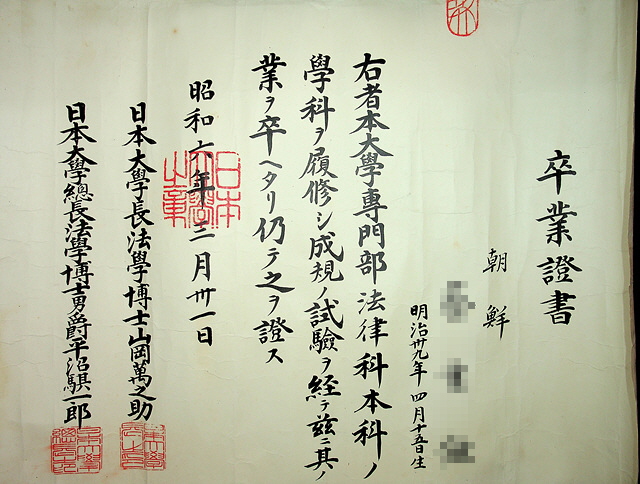 卒業證書
朝鮮
明治卅九年四月十五日生
右者本大學專門部法律科本科ノ
學科ヲ履修シ成規ノ試驗ヲ経テ茲ニ其ノ
業ヲ卒ヘタリ仍テ之ヲ證ス
昭和六年三月卅一日
日本大學長法學博士山岡萬之助
日本大學總長法學博士男爵平沼騏一郎